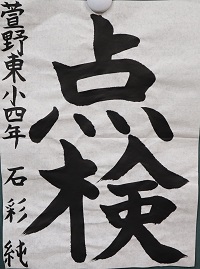 点検
萱野東小四年 石彩純